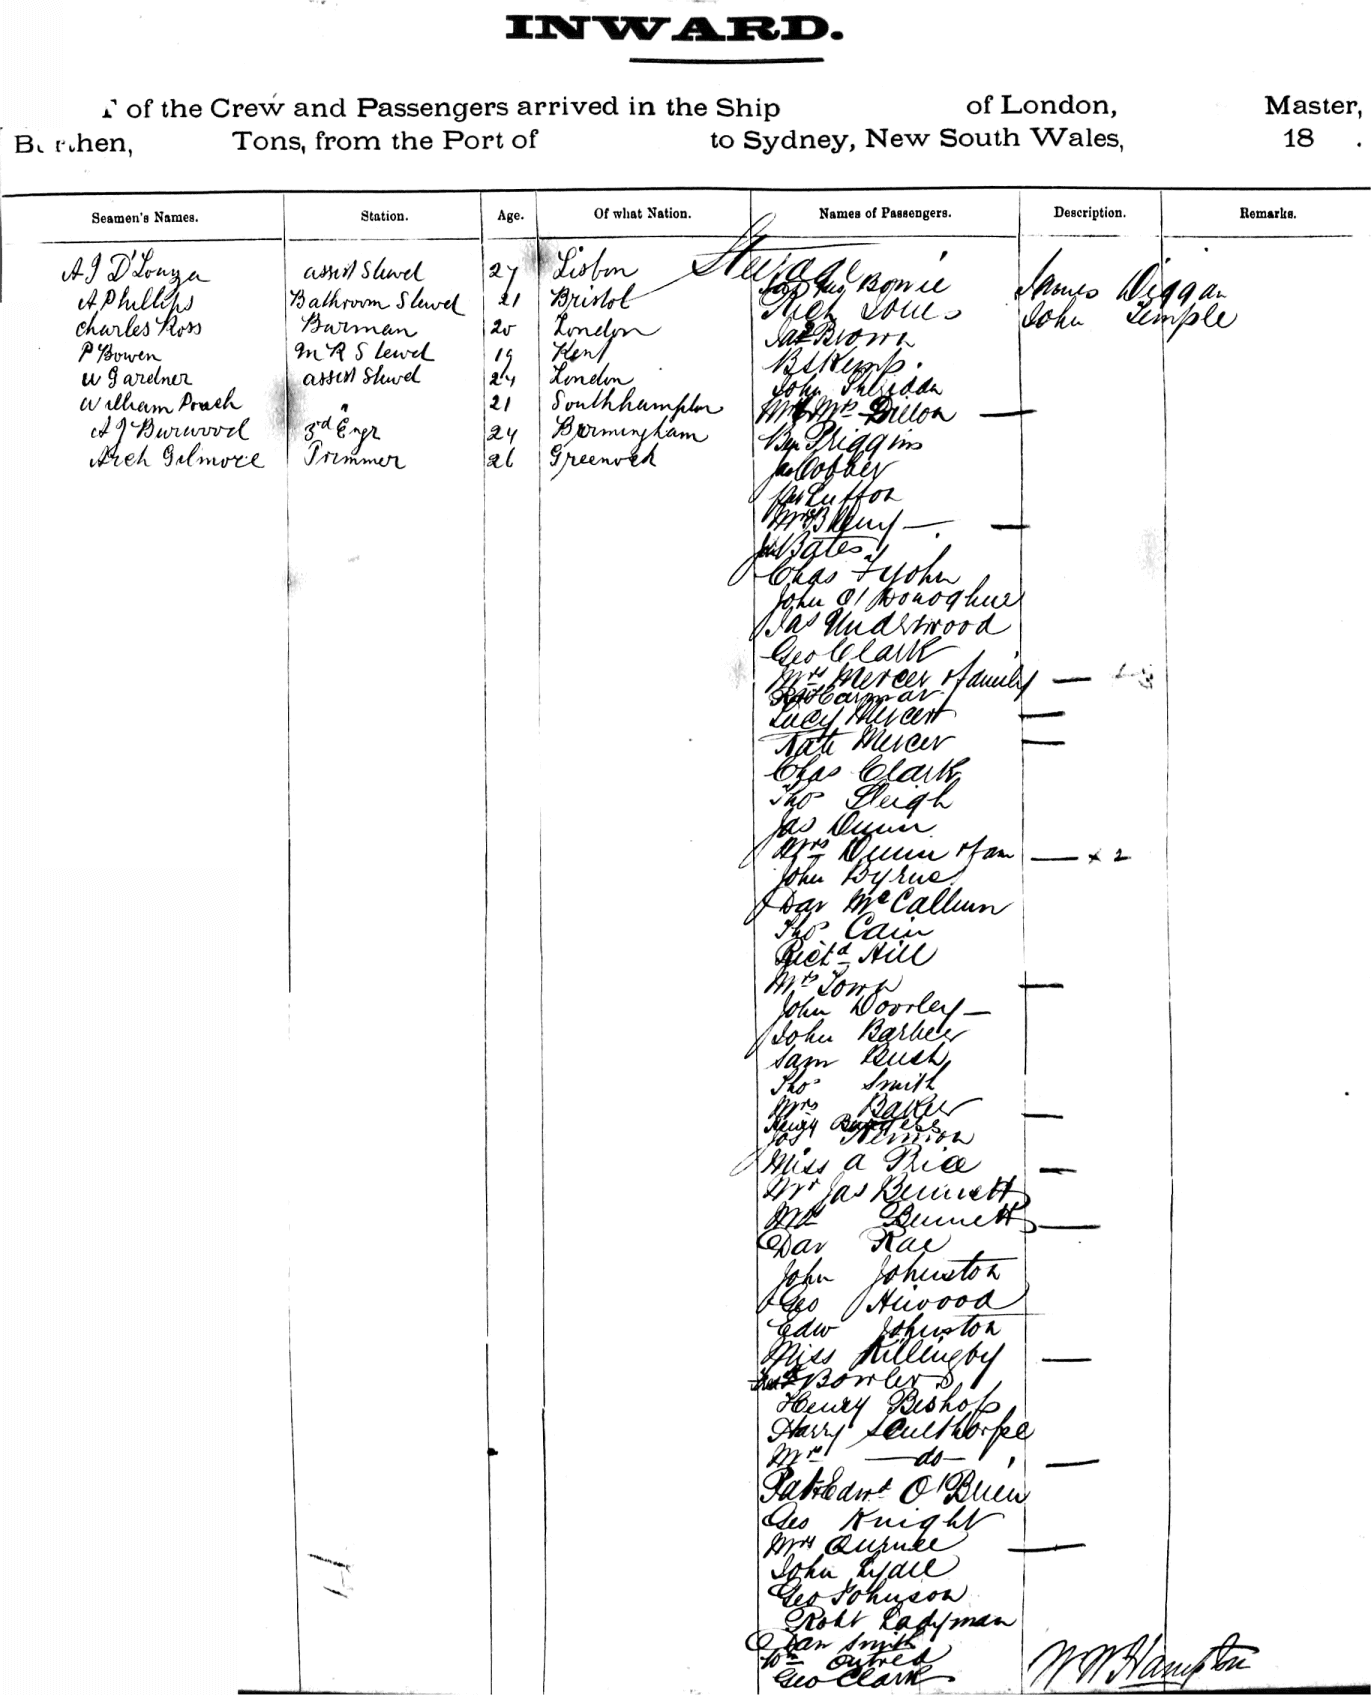 INWARD.
of the Crew and Passengers arrived in the Ship of London, Master,
Tons, from the Port of to Sydney, New South Wales, 18 .
Seamen's Names. Station. Age. Of what Nation. Names of Passengers. Description. Remarks.
Steerage
A J D'Souza assist Stewd 27 Lisbon Bowie James Diggan
A Phillips Bathroom Stewd 21 Bristol Rich John Temple
Charles Ross Barman 20 London Jas Brown
P Bowen M R Stewd 19 Kent Kemp
W Gardner assist Stewd 24 London John Sheridan
William Poach " 21 Southhampton Mr & Mrs Dillon —
A J Burwood 3rd Engr 24 Birmingham Priggins
Arch Gilmore Trimmer 26 Greenock Jas Cobber
Luffon
Mrs —
Bates
Chas
John O'Donoghue
Jas Underwood
Geo Clark
Mrs Mercer & family —
Harman
Lucy Mercer —
Kate Mercer —
Chas Clark
Thos Sleigh
Jas Dunn
Mrs Dunn & fam — x 2
John Byrne
Dav McCallum
Thos Cain
Richd Hill
Mrs Town —
John Doorley —
John Barber
Sam Bush
Thos Smith
Mrs Baker —
Henry Burgess
Jos
Miss A Rice —
Mr Jas Bennett
Mrs Bennett —
Dav Rae
John Johnston
Geo Atwood
Edw Johnston
Miss Killingby —
Bowler
Henry Bishop
Harry Sculthorpe
Mrs — do — —
Pat & Edwd O'Brien
Geo Knight
Mrs —
John Lydie
Geo Johnson
Robt Ladyman
Dan Smith
Wm Outred
Geo Clark W W Hampton